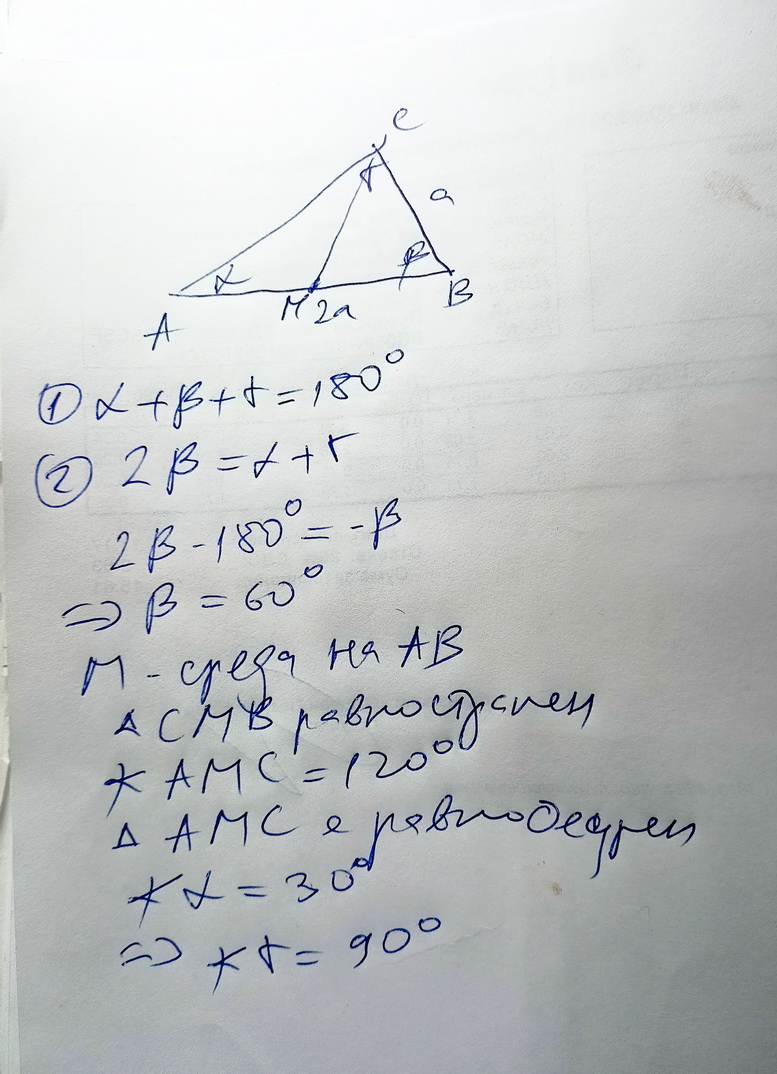 C
γ
a
α
β
A
M 2a
B
① α + β + γ = 180°
② 2β = α + γ
2β - 180° = -β
=> β = 60°
M - среда на AB
△ CMB равностранен
∢ AMC = 120°
△ AMC е равнобедрен
∢ α = 30°
=> ∢ γ = 90°